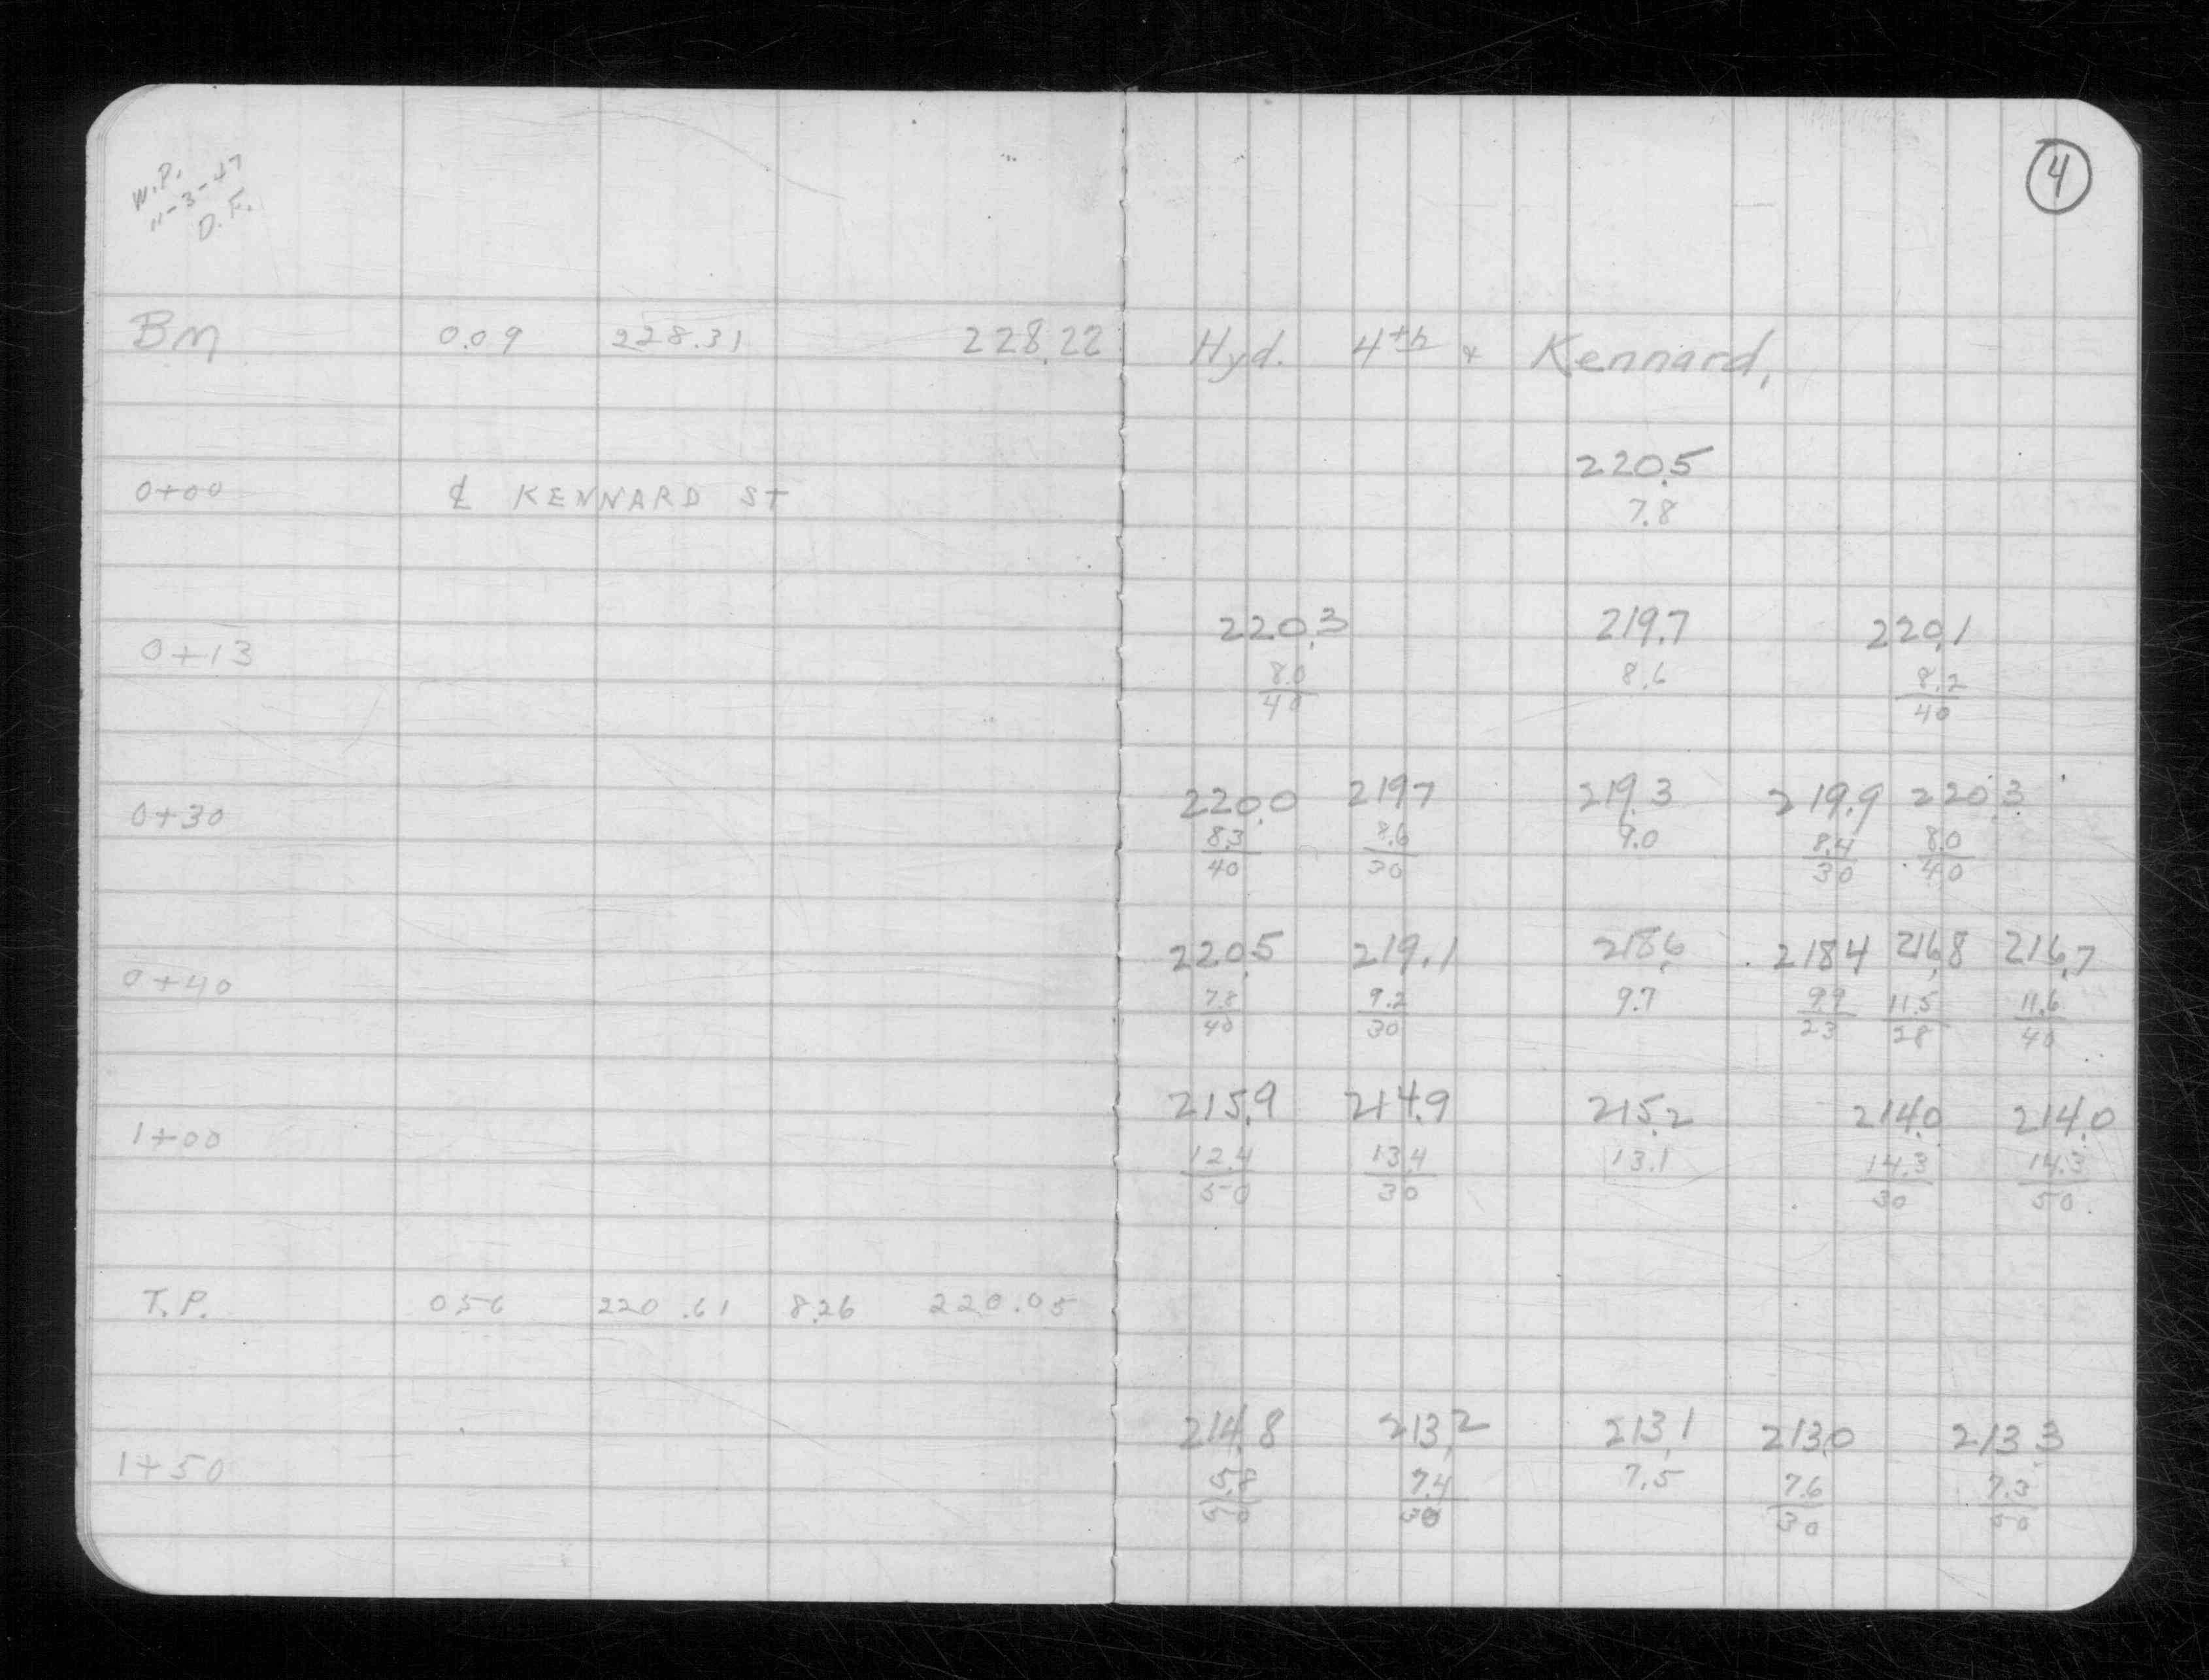 4
W.P.
11-3-47
D.F.
BM 0.09 228.31 228.22 Hyd. 4th & Kennard,
220.5
0+00 ℄ KENNARD ST 7.8
220.3 219.7 220.1
0+13 8.0 8.6 8.2
40 40
220.0 219.7 219.3 219.9 220.3
0+30 8.3 8.6 9.0 8.4 8.0
40 30 30 40
220.5 219.1 218.6 218.4 216.8 216.7
0+40 7.8 9.2 9.7 9.9 11.5 11.6
40 30 23 28 40
215.9 214.9 215.2 214.0 214.0
1+00 12.4 13.4 13.1 14.3 14.3
50 30 30 50
T.P. 0.56 220.61 8.26 220.05
214.8 213.2 213.1 213.0 213.3
1+50 5.8 7.4 7.5 7.6 7.3
50 30 30 50